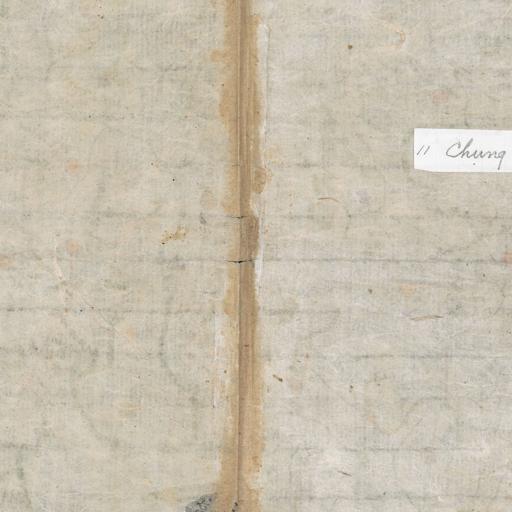 11 Chung